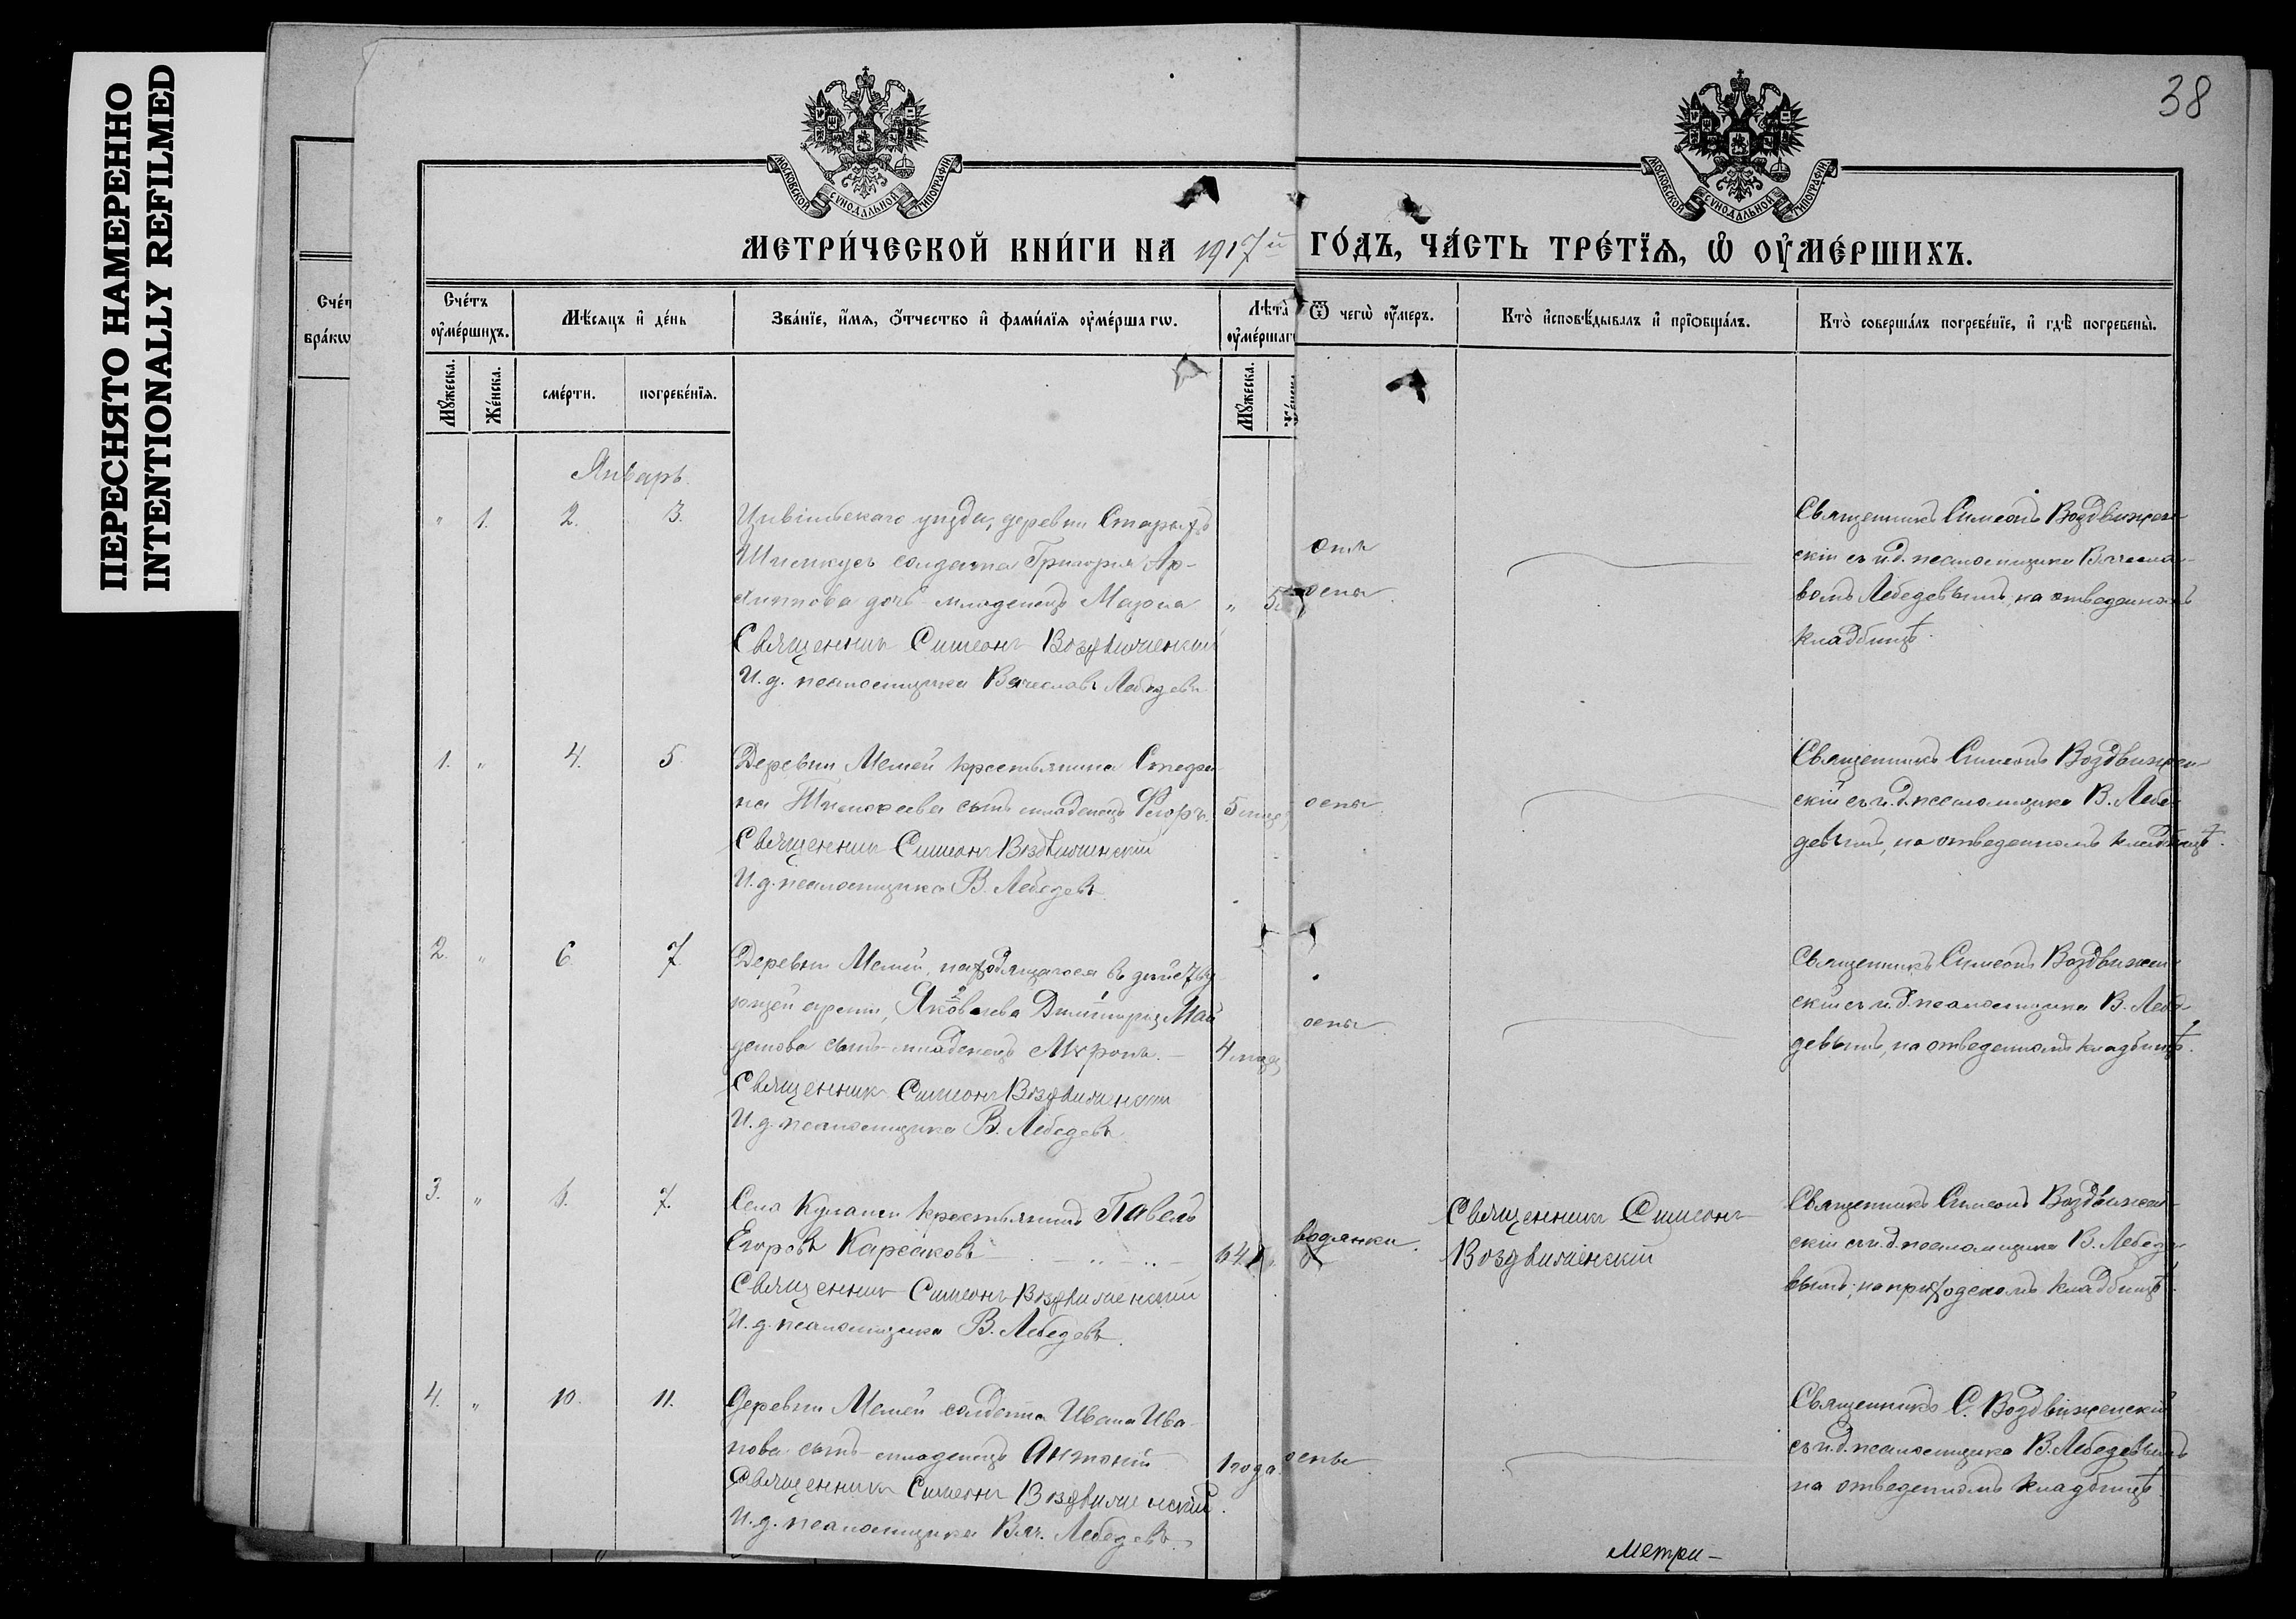 ПЕРЕСНЯТО НАМЕРЕННО
INTENTIONALLY REFILMED
38
МОСКОВСКОЙ СѴНОДАЛЬНОЙ ТИПОГРАФІИ
МОСКОВСКОЙ СѴНОДАЛЬНОЙ ТИПОГРАФІИ
МЕТРИ́ЧЕСКОЙ КНИ́ГИ НА 1917й ГО́ДЪ, ЧА́СТЬ ТРЕ́ТІѦ, Ѡ҆ ОУ҆МЕ́РШИХЪ.
Счéт
брáкѡ
Счéтъ оу҆мéршихъ.
Мꙋ́жеска.
Жéнска.
Мѣ́сяцъ и҆ дéнь
смéрти.
погребéнїя.
Звáнїе, и҆́мя, ѻ҆́тчество и҆ фамѝлїя оу҆мéршагѡ.
Лѣтà оу҆мéршаг
Мꙋ́жеска.
Ѿ чегѡ̀ оу҆́меръ.
Ктò и҆сповѣ́дывалъ и҆ прїѡбщáлъ.
Ктò совершáлъ погребéнїе, и҆ гдѣ̀ погребены̀.
Январь.
" 1. 2. 3.
Цивильскаго уѣзда, деревни Старыхъ
солдата Григорія Ар-
хипова дочь младенецъ Марѳа
" 5
Священникъ Симеонъ Воздвиженскій
И. д. псаломщика Вячеславъ Лебедевъ
отъ
оспы.
Священникъ Симеонъ Воздвижен-
скій съ и.д. псаломщика Вячесла-
вомъ Лебедевымъ, на отведенномъ
кладбищѣ.
1. " 4. 5.
Деревни Мемей крестьянина Стефа-
на Тимоѳеева сынъ младенецъ Флоръ.
5 мѣс.
Священникъ Симеонъ Воздвиженскій
И. д. псаломщика В. Лебедевъ
оспы.
Священникъ Симеонъ Воздвижен-
скій съ и.д. псаломщика В. Лебе-
девымъ, на отведенномъ кладбищѣ.
2. " 6. 7.
Деревни Мемей, находящагося въ дѣйству-
ющей арміи, Яковлева Димитрія
сынъ младенецъ Миронъ. –
4 мѣс.
Священникъ Симеонъ Воздвиженскій
И. д. псаломщика В. Лебедевъ.
оспы.
Священникъ Симеонъ Воздвижен-
скій съ и.д. псаломщика В. Лебе-
девымъ, на отведенномъ кладбищѣ.
3. " 6. 7.
Села Куланги крестьянинъ Павелъ
Егоровъ Карсаковъ
64
Священникъ Симеонъ Воздвиженскій
И. д. псаломщика В. Лебедевъ.
водянки.
Священникъ Симеонъ
Воздвиженскій
Священникъ Симеонъ Воздвижен-
скій съ и.д. псаломщика В. Лебеде-
вымъ, на приходскомъ кладбищѣ.
4. " 10. 11.
Деревни Мемей солдата Ивана Ива-
нова сынъ младенецъ Антоній
1 года.
Священникъ Симеонъ Воздвиженскій.
И. д. псаломщика Вяч. Лебедевъ.
оспы.
Священникъ С. Воздвиженскій
съ и.д. псаломщика В. Лебедевымъ
на отведенномъ кладбищѣ.
Метри–